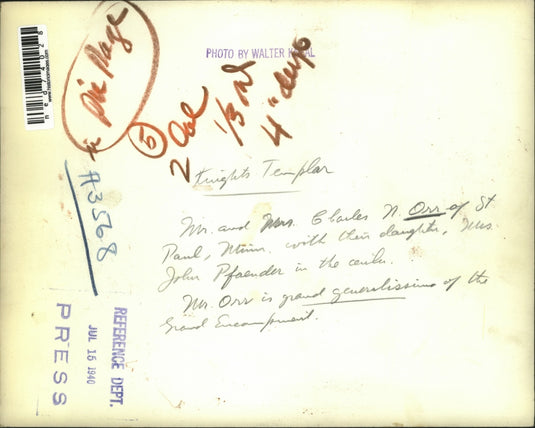 Pic Page
5
2 Col
1/3 rd
4" deep
PHOTO BY WALTER
Knights Templar
Mr. and Mrs. Charles N. Orr of St
Paul, Minn. with their daughter, Mrs.
John Pfaender in the center.
Mr. Orr is grand generalissimo of the
Grand Encampment.
A3568
REFERENCE DEPT.
JUL 15 1940
PRESS